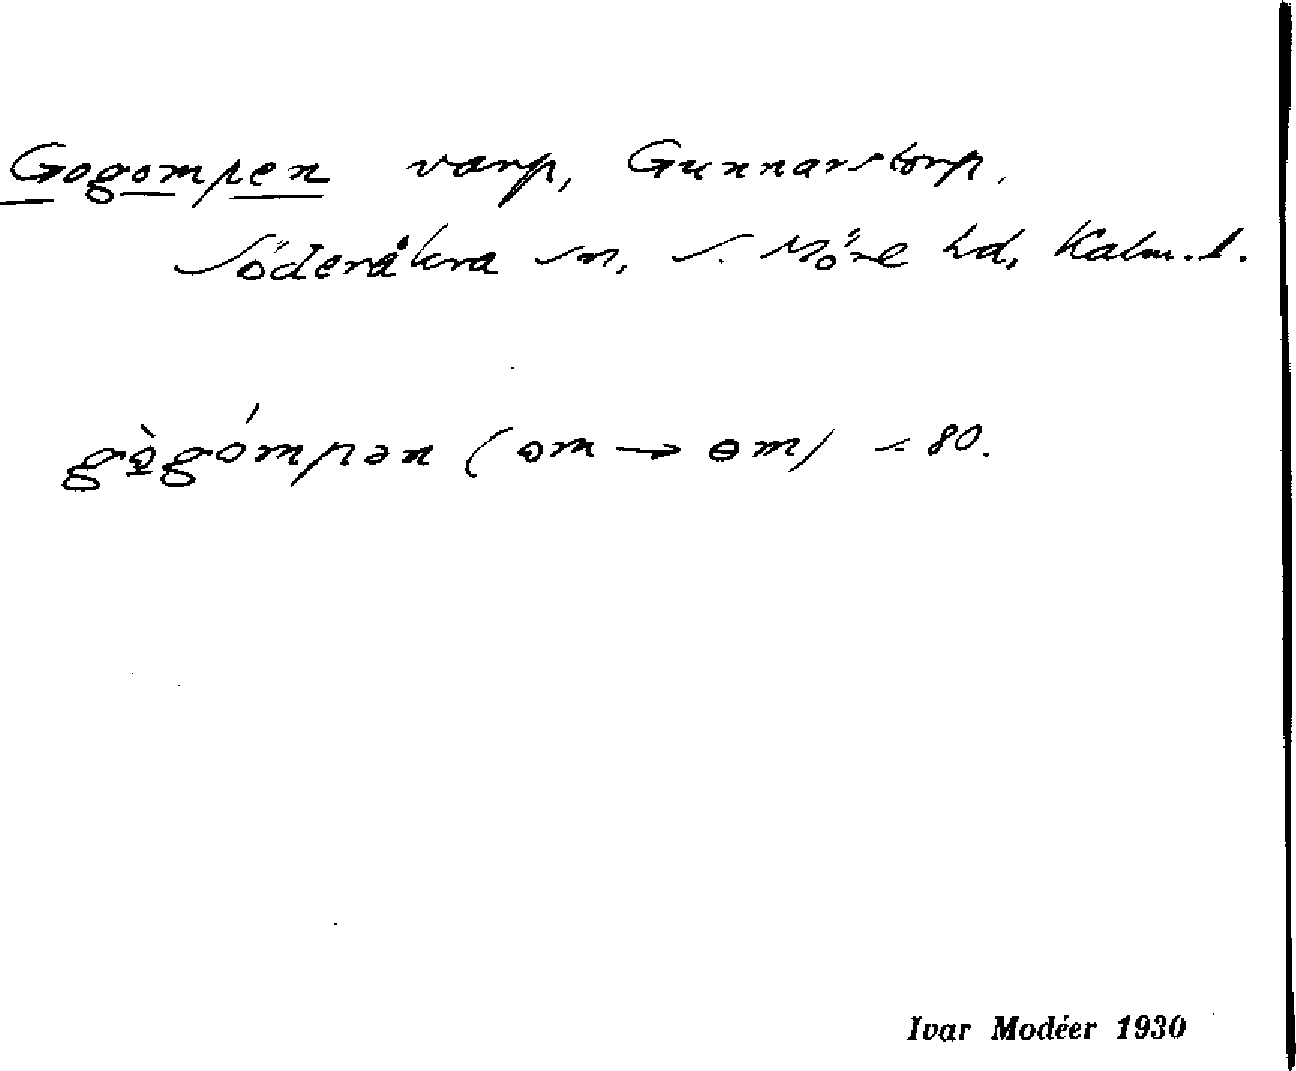 Gogompen varp, Gunnarstorp.
Söderåkra sn, S. Möre hd, Kalm. l.
gò̱gómpən (om → ɵm) < 80.
Ivar Modéer 1930